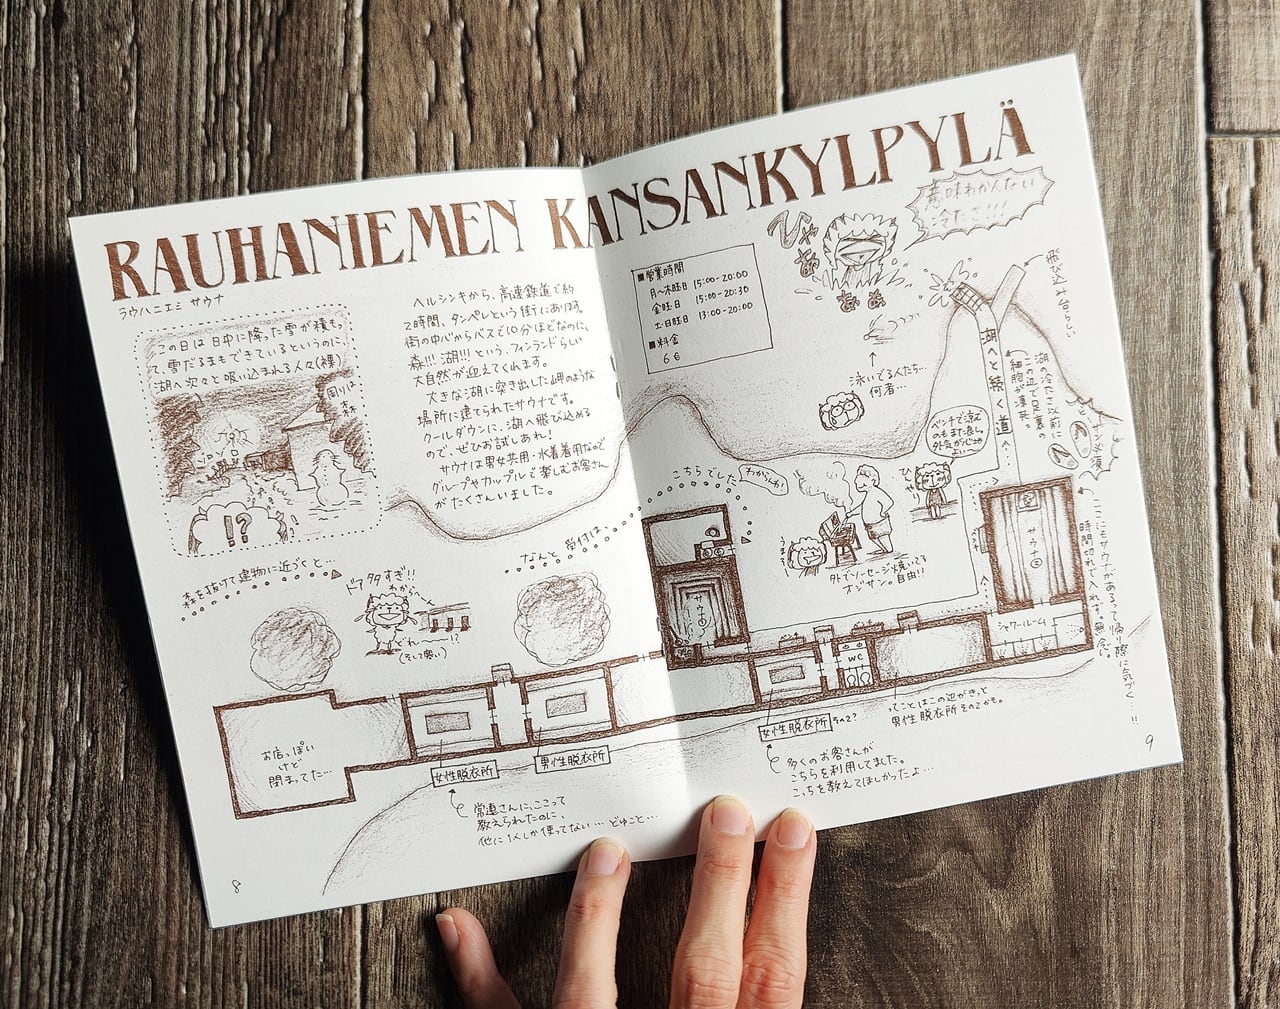 RAUHANIEMEN KANSANKYLPYLÄ
ラウハニエミ サウナ
この日は日中に降った雪が積もっ
て、雪だるまもできているというのに、
湖へ次々と吸い込まれる人々(裸)
周りは
森
!?
ヘルシンキから、高速鉄道で約
2時間、タンペレという街にあります。
街の中心からバスで10分ほどなのに、
森!!! 湖!!! という、フィンランドらしい
大自然が迎えてくれます。
大きな湖に突き出した岬のような
場所に建てられたサウナです。
クールダウンに、湖へ飛び込める
ので、ぜひお試しあれ!
サウナは男女共用・水着着用なので
グループやカップルで楽しむお客さん
がたくさんいました。
森を抜けて建物に近づくと…
ドア多すぎ!!
わからへん
どれ…!?
(そして寒い)
なんと 受付は…
お店っぽい
けど
閉まってた…
女性脱衣所
男性脱衣所
常連さんに、ここって
教えられたのに、
他に1人しか使ってない… どゆこと…
8
意味わかんない
冷たさ!!!
ひゃ
■営業時間
月〜木曜日 15:00-20:00
金曜日 15:00-20:30
土・日曜日 13:00-20:00
■料金
6€
泳いでる人たち…
何者…
飛び込み台らしい
湖へと続く道…
湖の冷たさ以前に
この辺で足裏の
細胞が凍死。
サンダル必須
ベンチで涼む
のもまた良し
外気が心地
よい
こちらでした
わからんわ
うまそう
外でソーセージ焼いてる
オジサン。自由!!
サウナ①
サウナ②
シャワールーム
WC
ここにもサウナがあるって帰り際に気づく…!!
時間切れで入れず。無念。
女性脱衣所 その2?
ってことはこの辺がきっと
男性脱衣所その2かも。
多くのお客さんが
こちらを利用してました。
こっちを教えてほしかったよ…
9